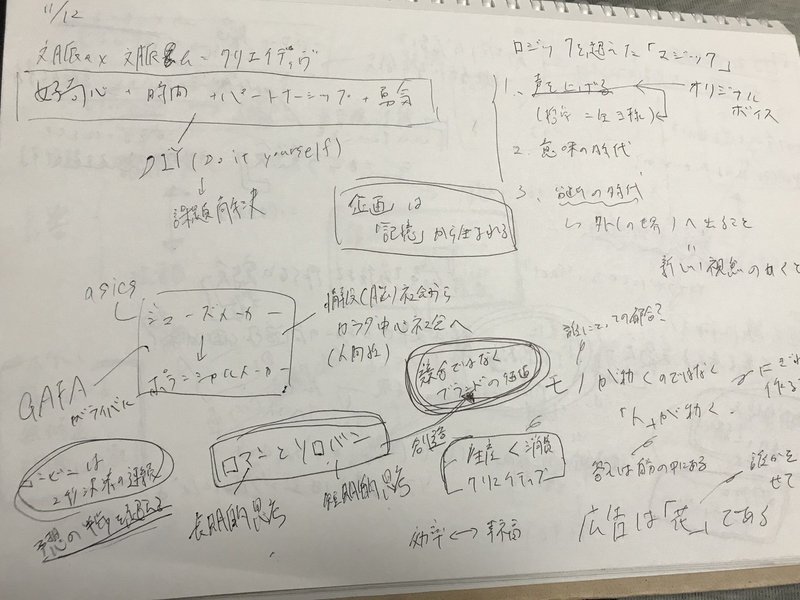 11/12
クリエイティヴ
好奇心 + 時間 + パートナーシップ + 勇気
DIY (Do it yourself)
↓
課題解決
企画は
「記憶」から生まれる
ロジックを超えた「マジック」
1. 声を上げる ← オリジナル
ボイス
2. 意味の時代
3. の時代
↳ 外(の世界)へ出ること
新しい視点
asics
シューズメーカー
↓
ポテンシャルメーカー
GAFA
がライバルに
情報(AI)社会から
中心社会へ
(人間)
ではなく
ブランドの価値
誰にとっての都合?
モノが動くのではなく
「人」が動く。
作る
コンビニは
予想の半歩
ロマンとソロバン
長期的思考
短期的思考
創造
生産 < 消費
クリエイティブ
答えは筋の中にある
効率 ↔ 幸福
広告は「花」である
誰かを
せて